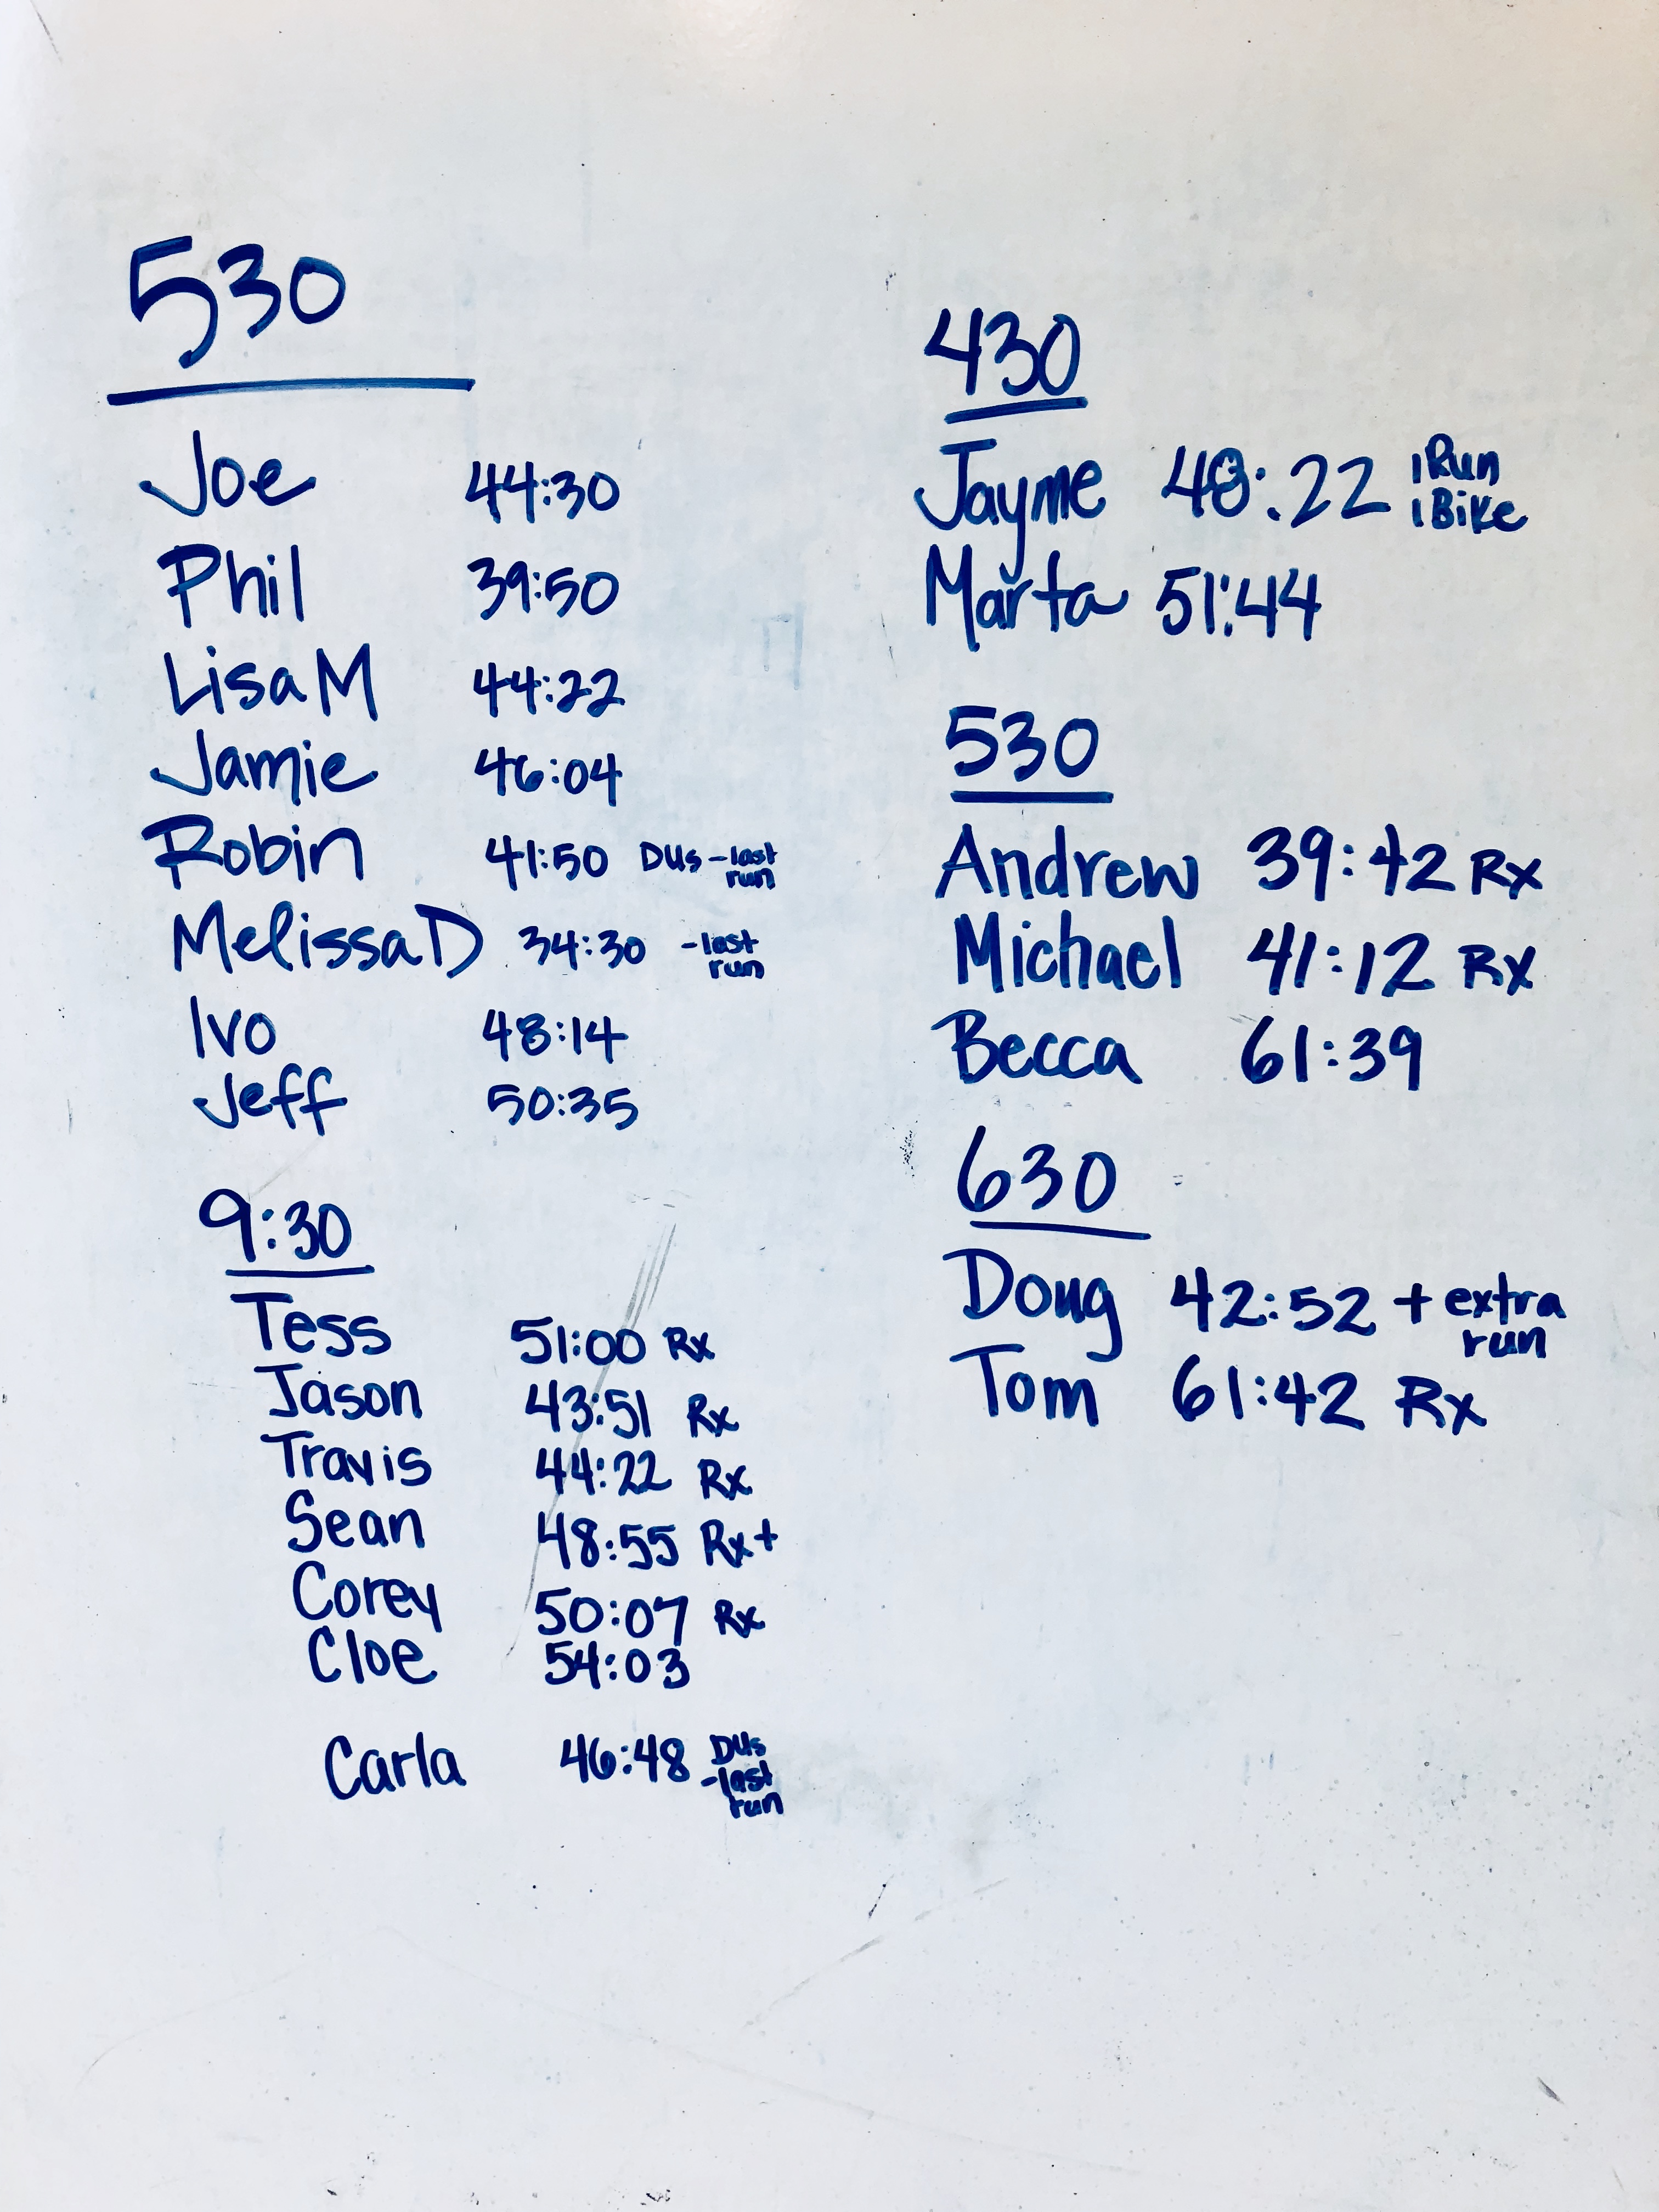 530
Joe 44:30
Phil 39:50
Lisa M 44:22
Jamie 46:04
Robin 41:50 DUs -last
run
Melissa D 34:30 -last
run
Ivo 48:14
Jeff 50:35
9:30
Tess 51:00 Rx
Jason 43:51 Rx
Travis 44:22 Rx
Sean 48:55 Rx+
Corey 50:07 Rx
Cloe 54:03
Carla 46:48 DUs
-last
run
430
Jayme 48:22 1 Run
1 Bike
Marta 51:44
530
Andrew 39:42 Rx
Michael 41:12 Rx
Becca 61:39
630
Doug 42:52 + extra
run
Tom 61:42 Rx